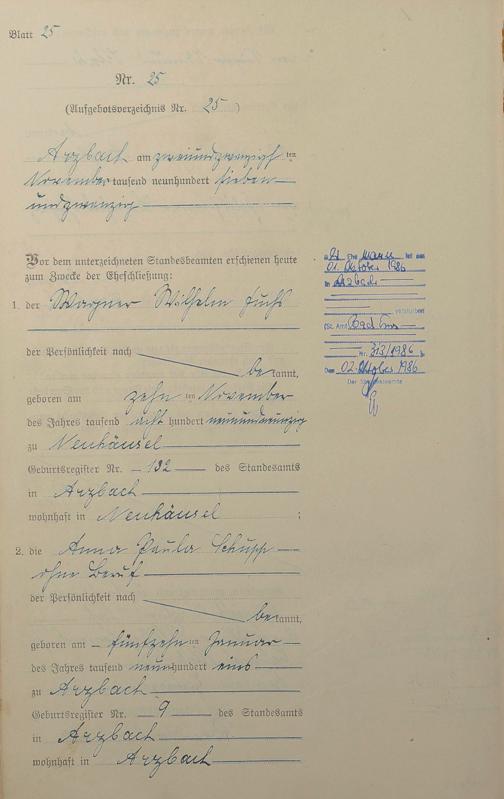 Blatt 25
Nr. 25
(Aufgebotsverzeichnis Nr. 25)
Arzbach am zweiundzwanzigsten
November tausend neunhundert sieben
undzwanzig
Vor dem unterzeichneten Standesbeamten erschienen heute
zum Zwecke der Eheschließung:
1. der Wagner Wilhelm Fuchs
der Persönlichkeit nach
bekannt,
geboren am zehn ten November
des Jahres tausend acht hundert neunundneunzig
zu Neuhäusel
Geburtsregister Nr. 132 des Standesamts
in Arzbach
wohnhaft in Neuhäusel ;
2. die Anna Paula Schupp
ohne Beruf
der Persönlichkeit nach
bekannt,
geboren am fünfzehn ten Januar
des Jahres tausend neunhundert eins
zu Arzbach
Geburtsregister Nr. 9 des Standesamts
in Arzbach
wohnhaft in Arzbach
Ehe ist am
01. Oktober 1986
in Arzbach
verstorben
(St. Amt Bad Ems
Nr. 313/1986
Den 02. Oktober 1986
Der Standesbeamte